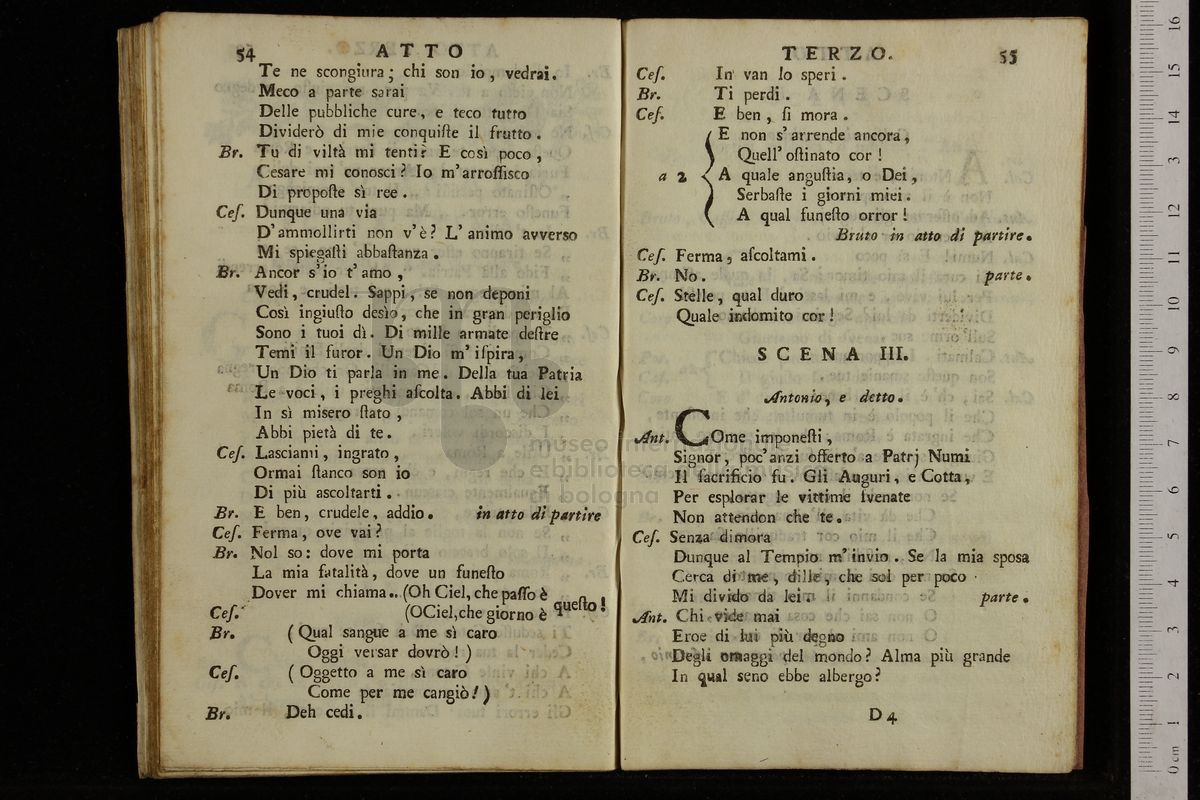 54 ATTO
Te ne scongiura; chi son io, vedrai.
Meco a parte sarai
Delle pubbliche cure, e teco tutto
Dividerò di mie conquiſte il frutto.
Br. Tu di viltà mi tenti? E così poco,
Cesare mi conosci? Io m'arroſſisco
Di propoſte sì ree.
Ceſ. Dunque una via
D'ammollirti non v'è? L'animo avverso
Mi spiegaſti abbaſtanza.
Br. Ancor s'io t'amo,
Vedi, crudel. Sappi, se non deponi
Così ingiuſto desìo, che in gran periglio
Sono i tuoi dì. Di mille armate deſtre
Temi il furor. Un Dio m'iſpira,
Un Dio ti parla in me. Della tua Patria
Le voci, i preghi aſcolta. Abbi di lei
In sì misero ſtato,
Abbi pietà di te.
Ceſ. Lasciami, ingrato,
Ormai ſtanco son io
Di più ascoltarti.
Br. E ben, crudele, addio. in atto di partire
Ceſ. Ferma, ove vai?
Br. Nol so: dove mi porta
La mia fatalità, dove un funeſto
Dover mi chiama.. (Oh Ciel, che paſſo è
Ceſ. (O Ciel, che giorno è queſto!
Br. (Qual sangue a me sì caro
Oggi versar dovrò!)
Ceſ. (Oggetto a me sì caro
Come per me cangiò!)
Br. Deh cedi.
TERZO. 55
Ceſ. In van lo speri.
Br. Ti perdi.
Ceſ. E ben, ſi mora.
E non s'arrende ancora,
Quell'oſtinato cor!
a 2 A quale anguſtia, o Dei,
Serbaſte i giorni miei.
A qual funeſto orror!
Bruto in atto di partire.
Ceſ. Ferma, aſcoltami.
Br. No. parte.
Ceſ. Stelle, qual duro
Quale indomito cor!
SCENA III.
Antonio, e detto.
Ant. COme imponeſti,
Signor, poc'anzi offerto a Patrj Numi
Il ſacrificio fu. Gli Auguri, e Cotta,
Per esplorar le vittime ſvenate
Non attendon che te.
Ceſ. Senza dimora
Dunque al Tempio m'invio. Se la mia sposa
Cerca di me, dille, che sol per poco
Mi divido da lei. parte.
Ant. Chi vide mai
Eroe di lui più degno
Degli omaggi del mondo? Alma più grande
In qual seno ebbe albergo?
D 4
museo internazionale
e biblioteca della musica
di bologna
0 cm 1 2 3 4 5 6 7 8 9 10 11 12 13 14 15 16